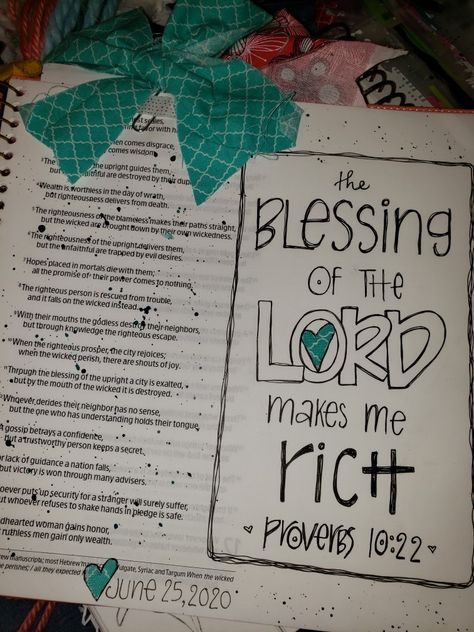 when comes disgrace,
comes wisdom.
The of the upright guides them,
but the unfaithful are destroyed by their
⁴Wealth is worthless in the day of wrath,
but righteousness delivers from death.
⁵The righteousness of the blameless makes their paths straight,
but the wicked are brought down by their own wickedness.
⁶The righteousness of the upright delivers them,
but the unfaithful are trapped by evil desires.
⁷Hopes placed in mortals die with them;
all the promise of their power comes to nothing.
⁸The righteous person is rescued from trouble,
and it falls on the wicked instead.
⁹With their mouths the godless destroy their neighbors,
but through knowledge the righteous escape.
¹⁰When the righteous prosper, the city rejoices;
when the wicked perish, there are shouts of joy.
¹¹Through the blessing of the upright a city is exalted,
but by the mouth of the wicked it is destroyed.
Whoever derides their neighbor has no sense,
but the one who has understanding holds their tongue.
gossip betrays a confidence,
but a trustworthy person keeps a secret.
lack of guidance a nation falls,
but victory is won through many advisers.
puts up security for a stranger will surely suffer,
but whoever refuses to shake hands in pledge is safe.
woman gains honor,
ruthless men gain only wealth.
manuscripts; most Hebrew Syriac and Targum When the wicked
perishes; / all they expected
June 25, 2020
the
BLessing
OF THE
LORD
makes me
ricH
Proverbs 10:22